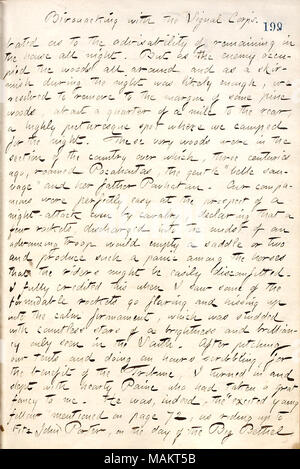 Bivouacking with the Signal Corps.
199
tated as to the advisability of remaining in
the house all night. But as the enemy occu-
pied the woods all around and as a skir-
mish during the night was likely enough, we
resolved to remove to the margin of some pine
woods about a quarter of a mile to the rear,
a highly picturesque spot where we camped
for the night. These very woods were in the
section of the country over which, three centuries
ago, roamed Pocahontas, the gentle "belle sau-
vage" and her father Powhatan. Our compan-
ions were perfectly easy at the prospect of a
night attack even by cavalry, declaring that a
few rockets discharged into the midst of an
advancing troop would empty a saddle or two
and produce such a panic among the horses
that the riders might be easily discomfited.
I fully credited this when I saw some of the
formidable rockets go flaring and hissing up
into the calm firmament, which was studded
with countless stars of a brightness and brillian-
cy only seen in the South. After pitching
our tents and doing an hours scribbling for
the benefit of the Tribune, I turned in and
slept with nearly Paine who had taken a great
fancy to me. He was, indeed, the excited young
fellow mentioned on page 72, as riding up to
Fitz John Porter, on the day of the Big Bethel
alamy
Image ID: MAKT5B
www.alamy.com